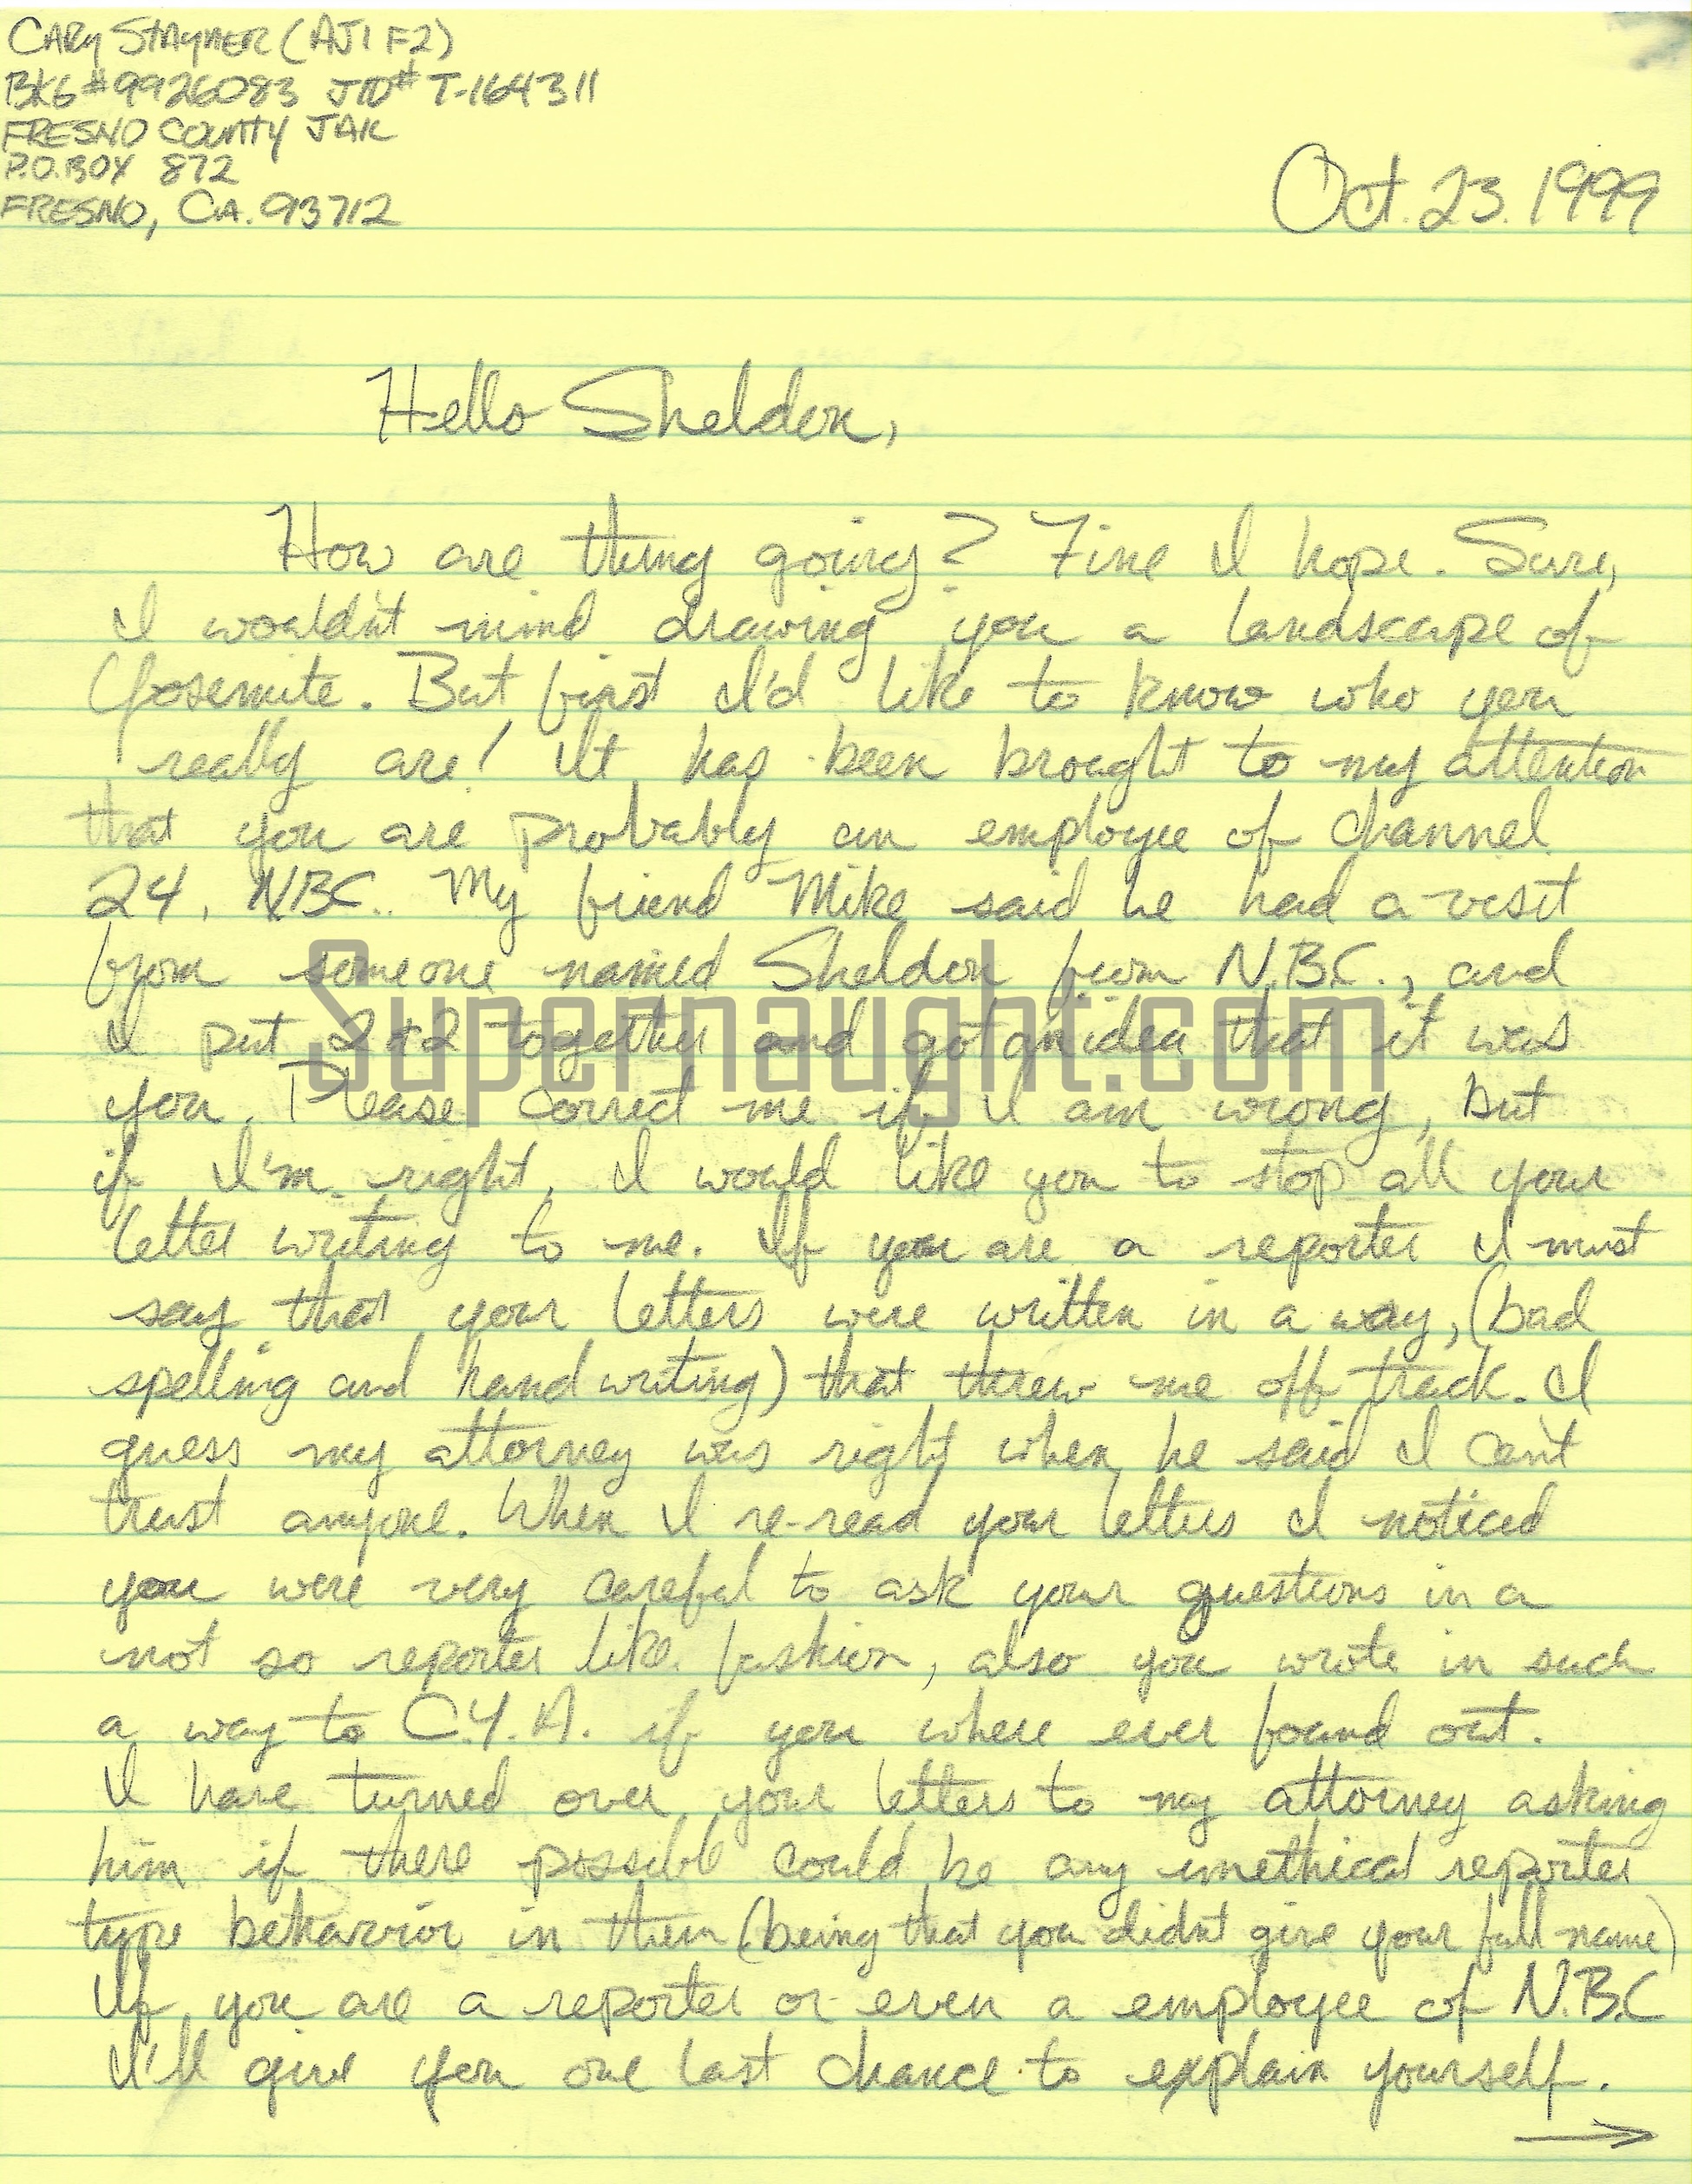 CARY STAYNER (AJ1 F2)
BKG #9926083 JID# T-164311
FRESNO COUNTY JAIL
P.O. BOX 872
FRESNO, CA. 93712
Oct. 23. 1999
Hello Sheldon,
How are thing going? Fine I hope. Sure,
I wouldn't mind drawing you a landscape of
Yosemite. But first I'd like to know who you
really are! It has been brought to my attention
that you are probably an employee of channel
24, NBC. My friend Mike said he had a visit
from someone named Sheldon from N.B.C., and
I put 2+2 together and got an idea that it was
you. Please correct me if I am wrong, but
if I'm right, I would like you to stop all your
letter writing to me. If you are a reporter I must
say that your letters were written in a way, (bad
spelling and hand writing) that threw me off track. I
guess my attorney was right when he said I can't
trust anyone. When I re-read your letters I noticed
you were very careful to ask your questions in a
not so reporter like fashion, also you wrote in such
a way to C.Y.A. if you where ever found out.
I have turned over your letters to my attorney asking
him if there possible could be any unethical reporter
type behavior in them (being that you didn't give your full name)
If you are a reporter or even a employee of N.B.C
I'll give you one last chance to explain yourself.
Supernaught.com